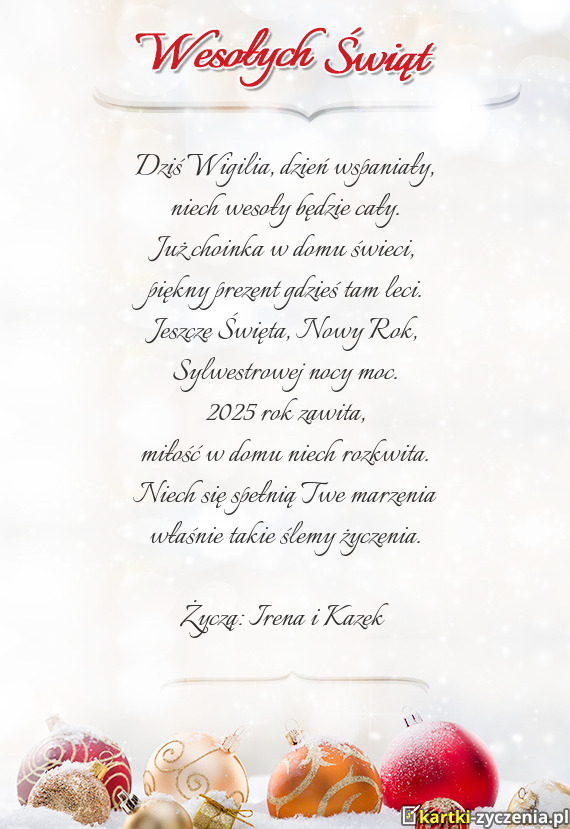 Wesołych Świąt
Dziś Wigilia, dzień wspaniały,
niech wesoły będzie cały.
Już choinka w domu świeci,
piękny prezent gdzieś tam leci.
Jeszcze Święta, Nowy Rok,
Sylwestrowej nocy moc.
2025 rok zawita,
miłość w domu niech rozkwita.
Niech się spełnią Twe marzenia
właśnie takie ślemy życzenia.
Życzą: Irena i Kazek
kartki-zyczenia.pl